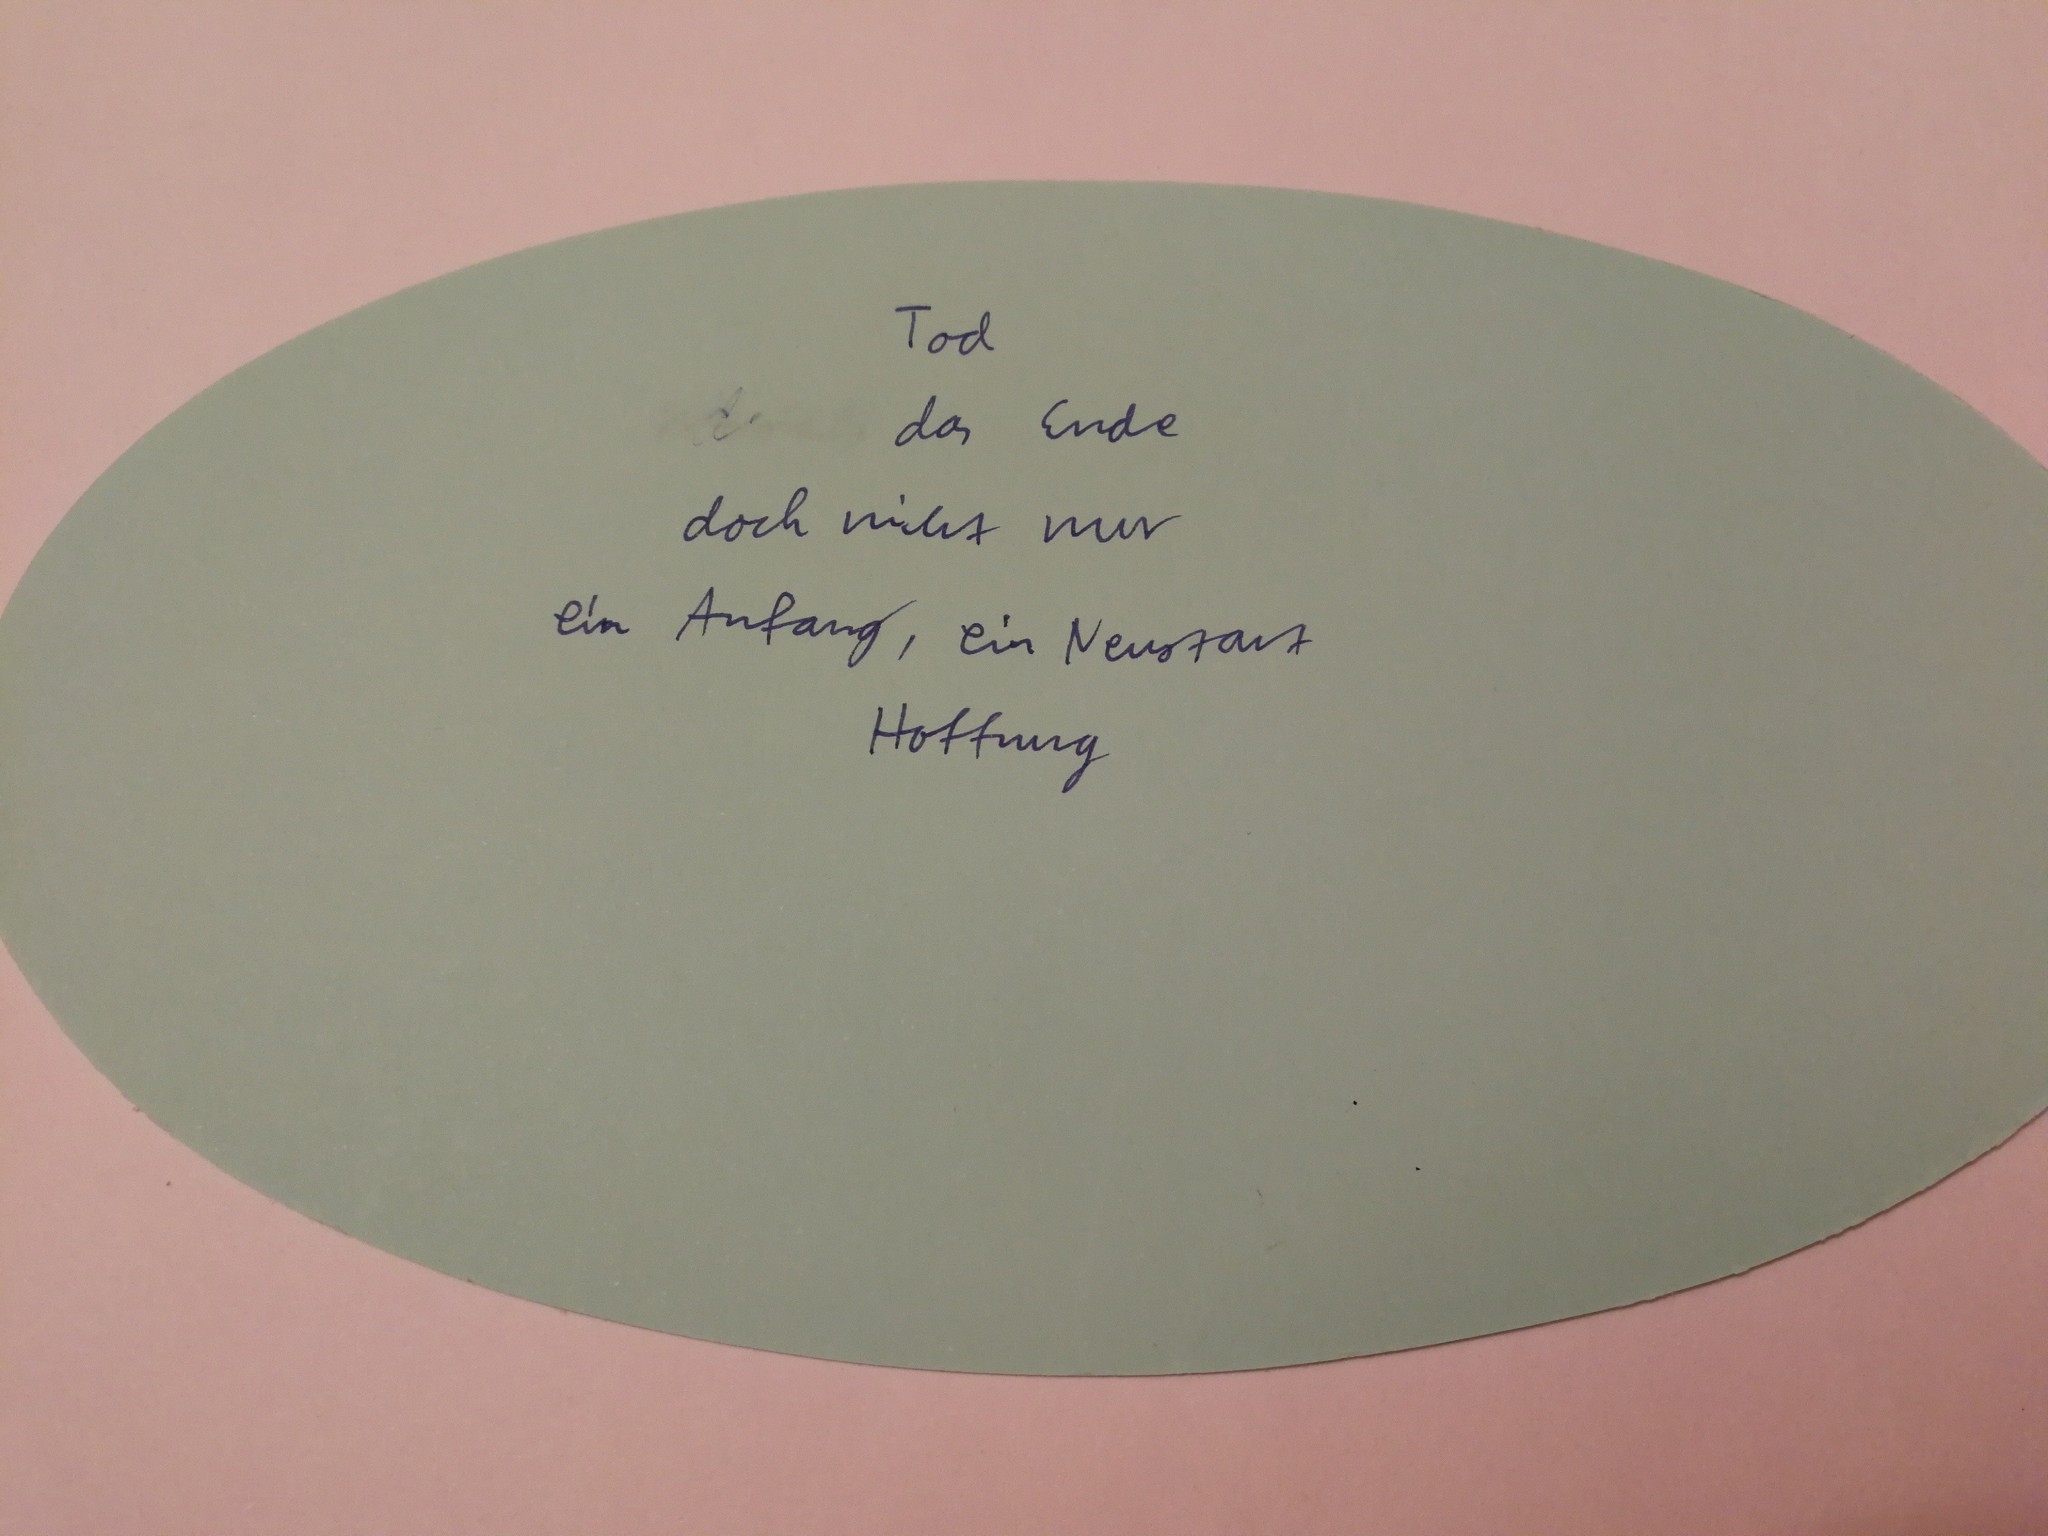 Tod
das Ende
doch nicht nur
ein Anfang, ein Neustart
Hoffnung